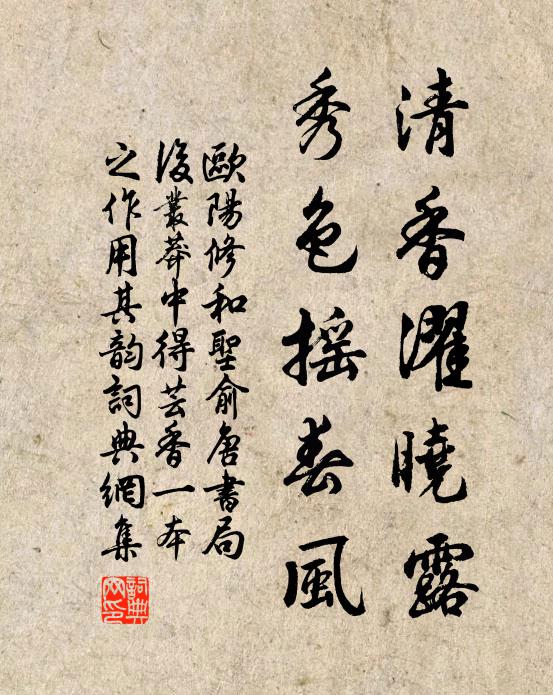 清香濯曉露
秀色揺春風
歐陽修和聖俞唐書局
後叢莽中得芸香一本
之作用其韵詞典網集
詞典网印